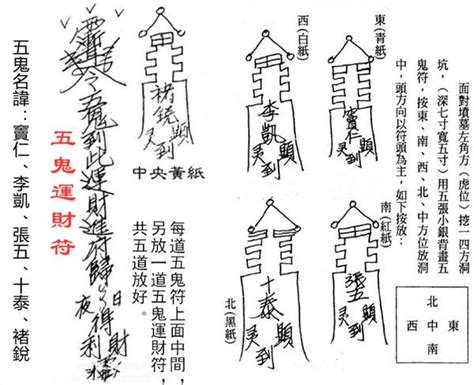 面對墳墓左角方(虎位)挖一四方
坑,(深七寸寬五寸)用五張小銀背畫五
鬼符,按東、南、西、北、中方位放洞
中,頭方向以符頭為主,如下按放:
北
西 中 東
南
東(青紙)
竇仁
顯
灵到
南(紅紙)
張五
顯
灵到
西(白紙)
李凱
顯
灵到
北(黑紙)
十泰
顯
灵到
褚銳
顯
灵到
中央黃紙
每道五鬼符上面中間,
另放一道五鬼運財符,
共五道放好。
令五鬼到此運財進符歸
日夜得財利
五鬼運財符
五鬼名諱:竇仁、李凱、張五、十泰、褚銳